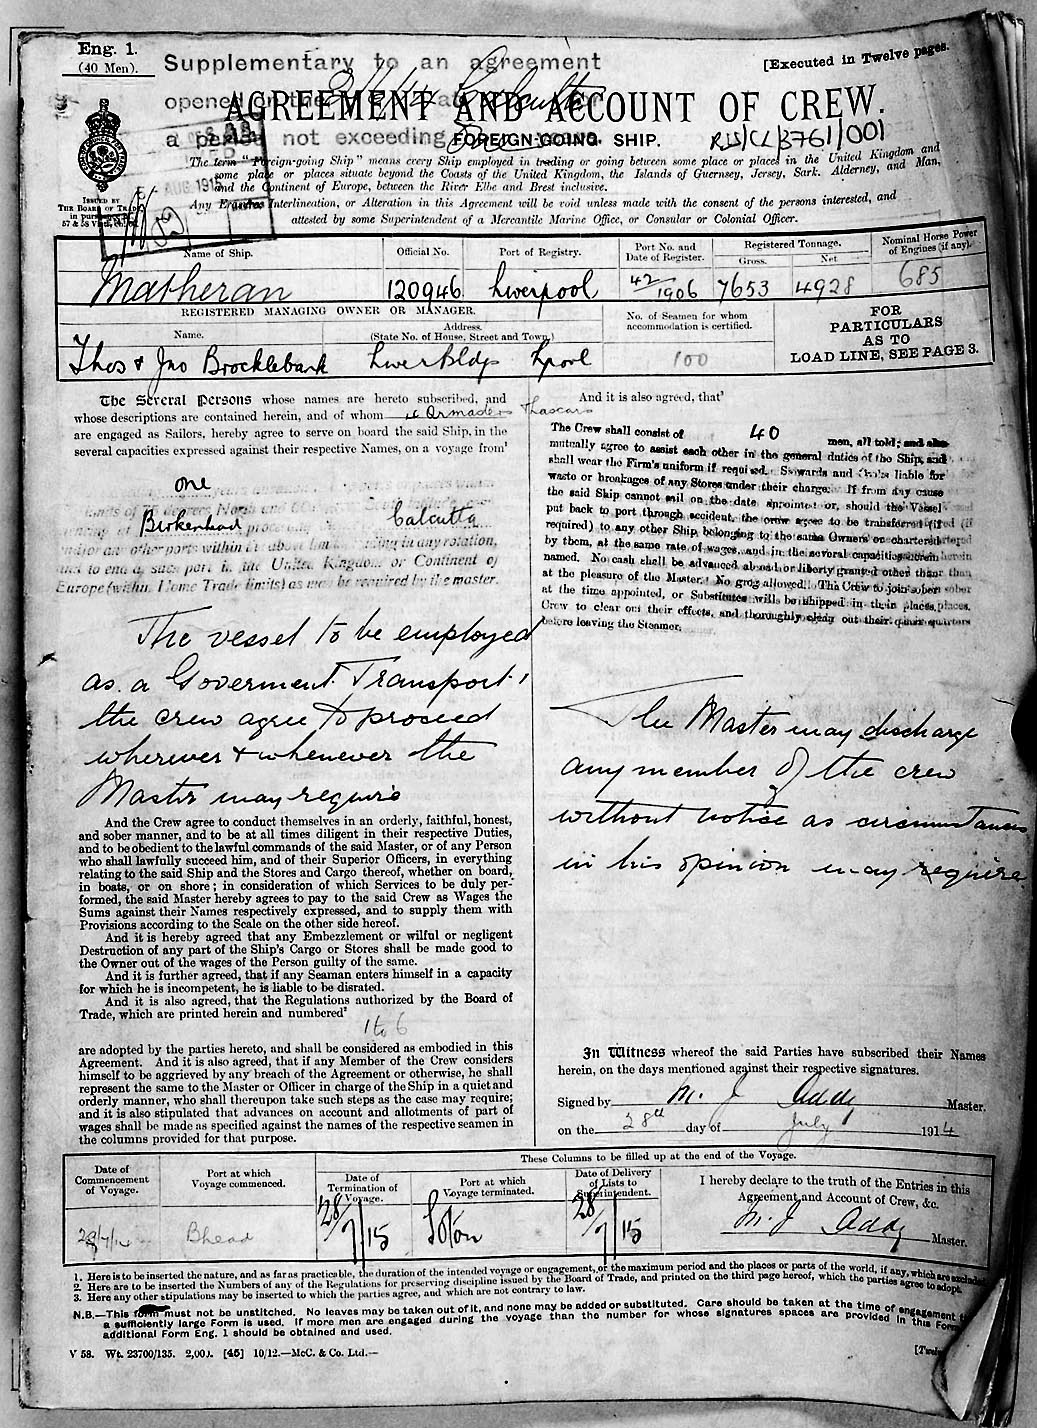 Eng. 1.
(40 Men).
Supplementary to an agreement
[Executed in Twelve pages.
opened on the
AGREEMENT AND ACCOUNT OF CREW.
a period not exceeding
FOREIGN-GOING SHIP.
RSS/CL/3761/001
The term "Foreign-going Ship" means every Ship employed in trading or going between some place or places in the United Kingdom and
some place or places situate beyond the Coasts of the United Kingdom, the Islands of Guernsey, Jersey, Sark, Alderney, and Man,
and the Continent of Europe, between the River Elbe and Brest inclusive.
Any Erasure, Interlineation, or Alteration in this Agreement will be void unless made with the consent of the persons interested, and
attested by some Superintendent of a Mercantile Marine Office, or Consular or Colonial Officer.
AUG 1915
ISSUED BY
THE BOARD OF TRADE
in pursuance of
57 & 58 Vict.
Name of Ship.
Official No.
Port of Registry.
Port No. and
Date of Register.
Registered Tonnage.
Gross.
Net
Nominal Horse Power
of Engines (if any).
Matheran
120946
Liverpool
42/1906
7653
4928
685
REGISTERED MANAGING OWNER OR MANAGER.
Name.
Address.
(State No. of House, Street and Town)
No. of Seamen for whom
accommodation is certified.
FOR
PARTICULARS
AS TO
LOAD LINE, SEE PAGE 3.
Thos & Jno Brocklebank
Liver Bldgs
Lpool
100
The Several Persons whose names are hereto subscribed, and
whose descriptions are contained herein, and of whom
Lascars
are engaged as Sailors, hereby agree to serve on board the said Ship, in the
several capacities expressed against their respective Names, on a voyage from¹
one
Birkenhead
Calcutta
and/or any other ports within the above limits trading in any rotation,
and to end at such port in the United Kingdom or Continent of
Europe (within Home Trade limits) as may be required by the master.
The vessel to be employed
as a Goverment Transport,
the crew agree to proceed
wherever & whenever the
Master may require
And the Crew agree to conduct themselves in an orderly, faithful, honest,
and sober manner, and to be at all times diligent in their respective Duties,
and to be obedient to the lawful commands of the said Master, or of any Person
who shall lawfully succeed him, and of their Superior Officers, in everything
relating to the said Ship and the Stores and Cargo thereof, whether on board,
in boats, or on shore; in consideration of which Services to be duly per-
formed, the said Master hereby agrees to pay to the said Crew as Wages the
Sums against their Names respectively expressed, and to supply them with
Provisions according to the Scale on the other side hereof.
And it is hereby agreed that any Embezzlement or wilful or negligent
Destruction of any part of the Ship's Cargo or Stores shall be made good to
the Owner out of the wages of the Person guilty of the same.
And it is further agreed, that if any Seaman enters himself in a capacity
for which he is incompetent, he is liable to be disrated.
And it is also agreed, that the Regulations authorized by the Board of
Trade, which are printed herein and numbered²
1 to 6
are adopted by the parties hereto, and shall be considered as embodied in this
Agreement. And it is also agreed, that if any Member of the Crew considers
himself to be aggrieved by any breach of the Agreement or otherwise, he shall
represent the same to the Master or Officer in charge of the Ship in a quiet and
orderly manner, who shall thereupon take such steps as the case may require;
and it is also stipulated that advances on account and allotments of part of
wages shall be made as specified against the names of the respective seamen in
the columns provided for that purpose.
And it is also agreed, that³
The Crew shall consist of 40 men, all told; and also
mutually agree to assist each other in the general duties of the Ship, and
shall wear the Firm's uniform if required. Stewards and Cooks liable for
waste or breakages of any Stores under their charge. If from any cause
the said Ship cannot sail on the date appointed or, should the Vessel
put back to port through accident, the crew agree to be transferred (if
required) to any other Ship belonging to the same Owners or chartered
by them, at the same rate of wages, and in the several capacities herein
named. No cash shall be advanced abroad or liberty granted other than
at the pleasure of the Master. No grog allowed. The Crew to join sober
at the time appointed, or Substitutes will be shipped in their places.
Crew to clear out their effects, and thoroughly clean out their quarters
before leaving the Steamer.
The Master may discharge
any member of the crew
without notice as circumstances
in his opinion may require
In Witness whereof the said Parties have subscribed their Names
herein, on the days mentioned against their respective signatures.
Signed by M. J. Addy Master.
on the 28th day of July 1914
These Columns to be filled up at the end of the Voyage.
Date of
Commencement
of Voyage.
Port at which
Voyage commenced.
Date of
Termination of
Voyage.
Port at which
Voyage terminated.
Date of Delivery
of Lists to
Superintendent.
I hereby declare to the truth of the Entries in this
Agreement and Account of Crew, &c.
28/7/14
Bhead
28/7/15
Soton
28/7/15
M. J. Addy Master.
1. Here is to be inserted the nature, and as far as practicable, the duration of the intended voyage or engagement, or the maximum period and the places or parts of the world, if any, which are excluded
2. Here are to be inserted the Numbers of any of the Regulations for preserving discipline issued by the Board of Trade, and printed on the third page hereof, which the parties agree to adopt.
3. Here any other stipulations may be inserted to which the parties agree, and which are not contrary to law.
N.B.—This form must not be unstitched. No leaves may be taken out of it, and none may be added or substituted. Care should be taken at the time of engagement
a sufficiently large Form is used. If more men are engaged during the voyage than the number for whose signatures spaces are provided in this Form
additional Form Eng. 1 should be obtained and used.
V 58. Wt. 23700/135. 2,000. [45] 10/12.—McC. & Co. Ltd.—